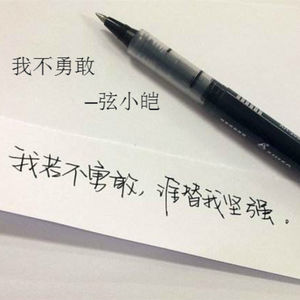 我不勇敢
—弦小皑
我若不勇敢，谁替我坚强。